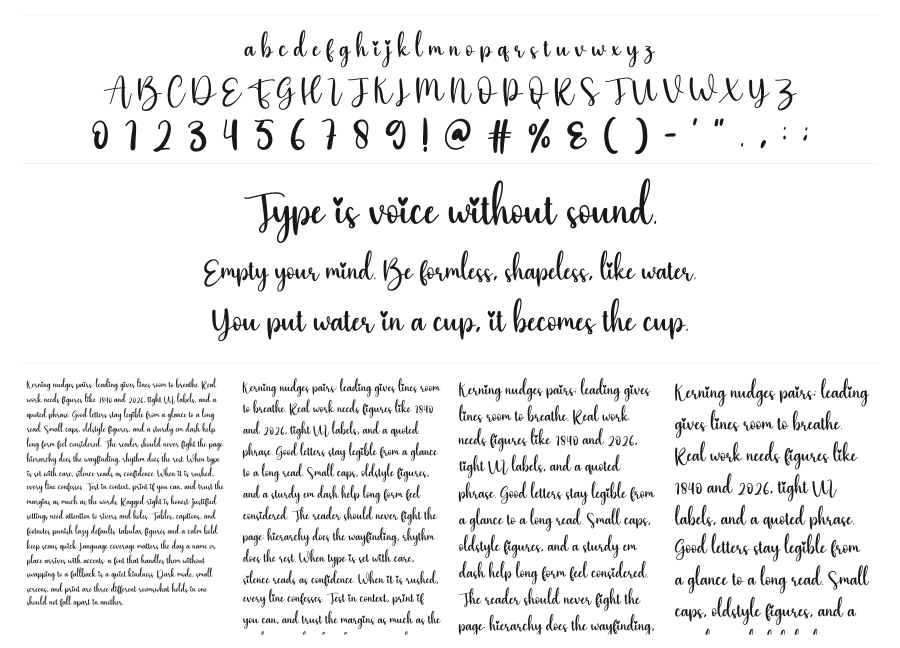 a b c d e f g h i j k l m n o p q r s t u v w x y z
A B C D E F G H I J K L M N O P Q R S T U V W X Y Z
0 1 2 3 4 5 6 7 8 9 ! @ # % & ( ) - ' " . , : ;
Type is voice without sound.
Empty your mind. Be formless, shapeless, like water.
You put water in a cup, it becomes the cup.
Kerning nudges pairs; leading gives lines room to breathe. Real
work needs figures like 1840 and 2026, tight UI labels, and a
quoted phrase. Good letters stay legible from a glance to a long
read. Small caps, oldstyle figures, and a sturdy em dash help
long form feel considered. The reader should never fight the page:
hierarchy does the wayfinding, rhythm does the rest. When type
is set with care, silence reads as confidence. When it is rushed,
every line confesses. Test in context, print if you can, and trust the
margins as much as the words. Ragged right is honest; justified
setting needs attention to rivers and holes. Tables, captions, and
footnotes punish lazy defaults; tabular figures and a calm bold
keep scans quick. Language coverage matters the day a name or
place arrives with accents: a font that handles them without
swapping to a fallback is a quiet kindness. Dark mode, small
screens, and print are three different rooms; what holds in one
should not fall apart in another.
Kerning nudges pairs; leading gives lines room
to breathe. Real work needs figures like 1840
and 2026, tight UI labels, and a quoted
phrase. Good letters stay legible from a glance
to a long read. Small caps, oldstyle figures,
and a sturdy em dash help long form feel
considered. The reader should never fight the
page: hierarchy does the wayfinding, rhythm
does the rest. When type is set with care,
silence reads as confidence. When it is rushed,
every line confesses. Test in context, print if
you can, and trust the margins as much as the
Kerning nudges pairs; leading gives
lines room to breathe. Real work
needs figures like 1840 and 2026,
tight UI labels, and a quoted
phrase. Good letters stay legible from
a glance to a long read. Small caps,
oldstyle figures, and a sturdy em
dash help long form feel considered.
The reader should never fight the
page: hierarchy does the wayfinding,
Kerning nudges pairs; leading
gives lines room to breathe.
Real work needs figures like
1840 and 2026, tight UI
labels, and a quoted phrase.
Good letters stay legible from
a glance to a long read. Small
caps, oldstyle figures, and a